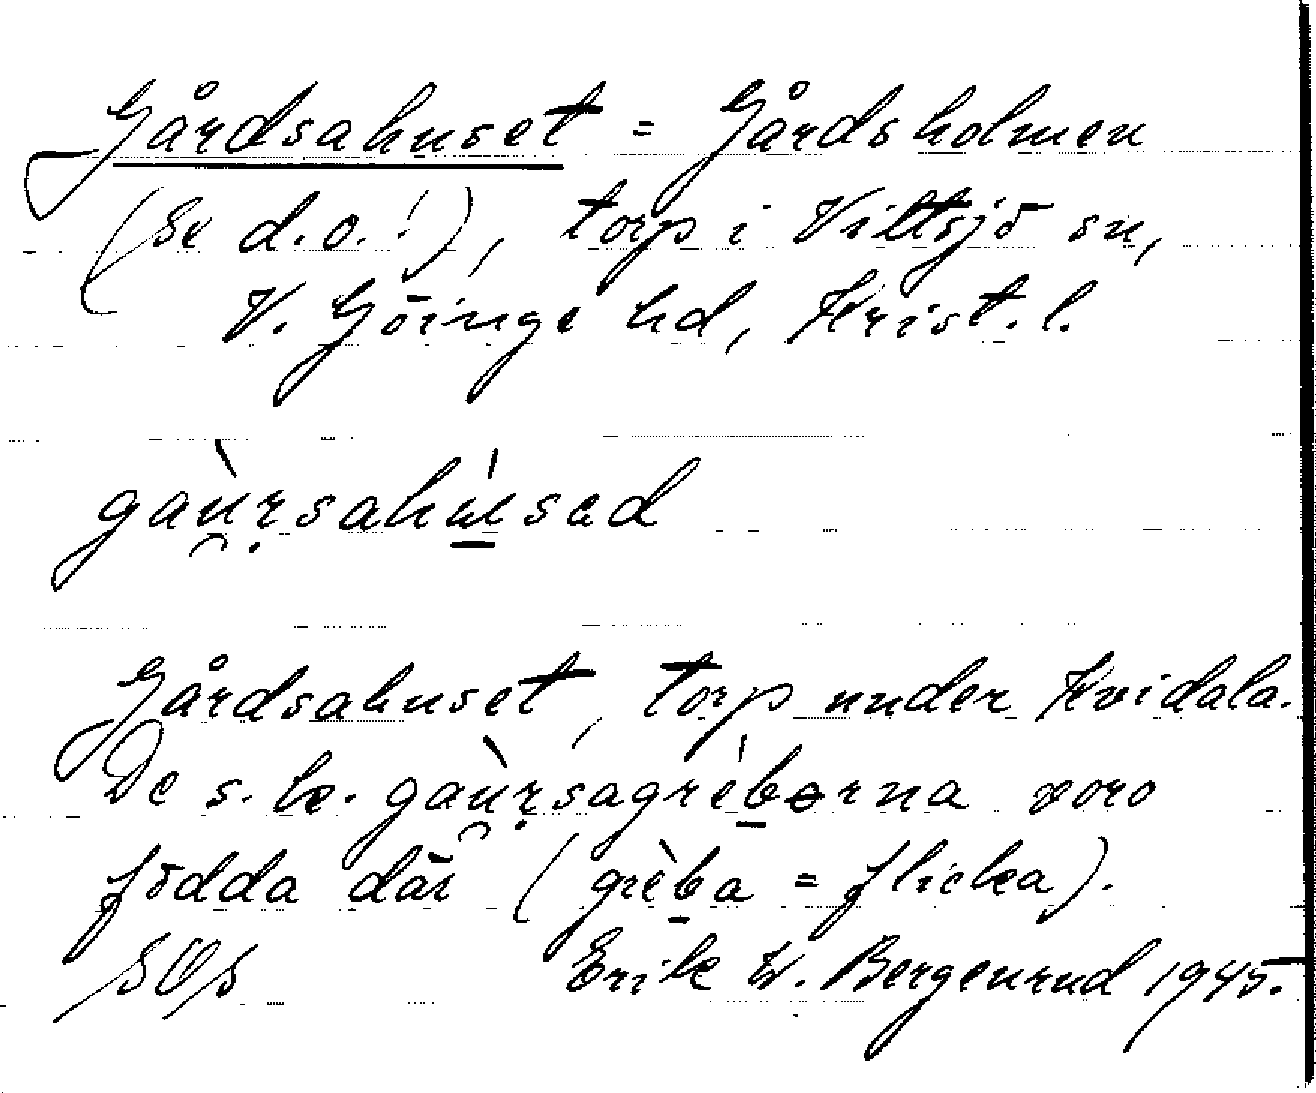 Gårdsahuset = Gårdsholmen
(Se d.o.!), torp i Vittsjö sn,
V. Göinge hd, Krist. l.
gaù̯ṛsahu̱̍sed
Gårdsahuset, torp under Hvidala.
De s.k. gaù̯ṛsagre̍b̲ərna voro
födda där (grèb̲a = flicka).
SOS Erik W. Bergenrud 1945.